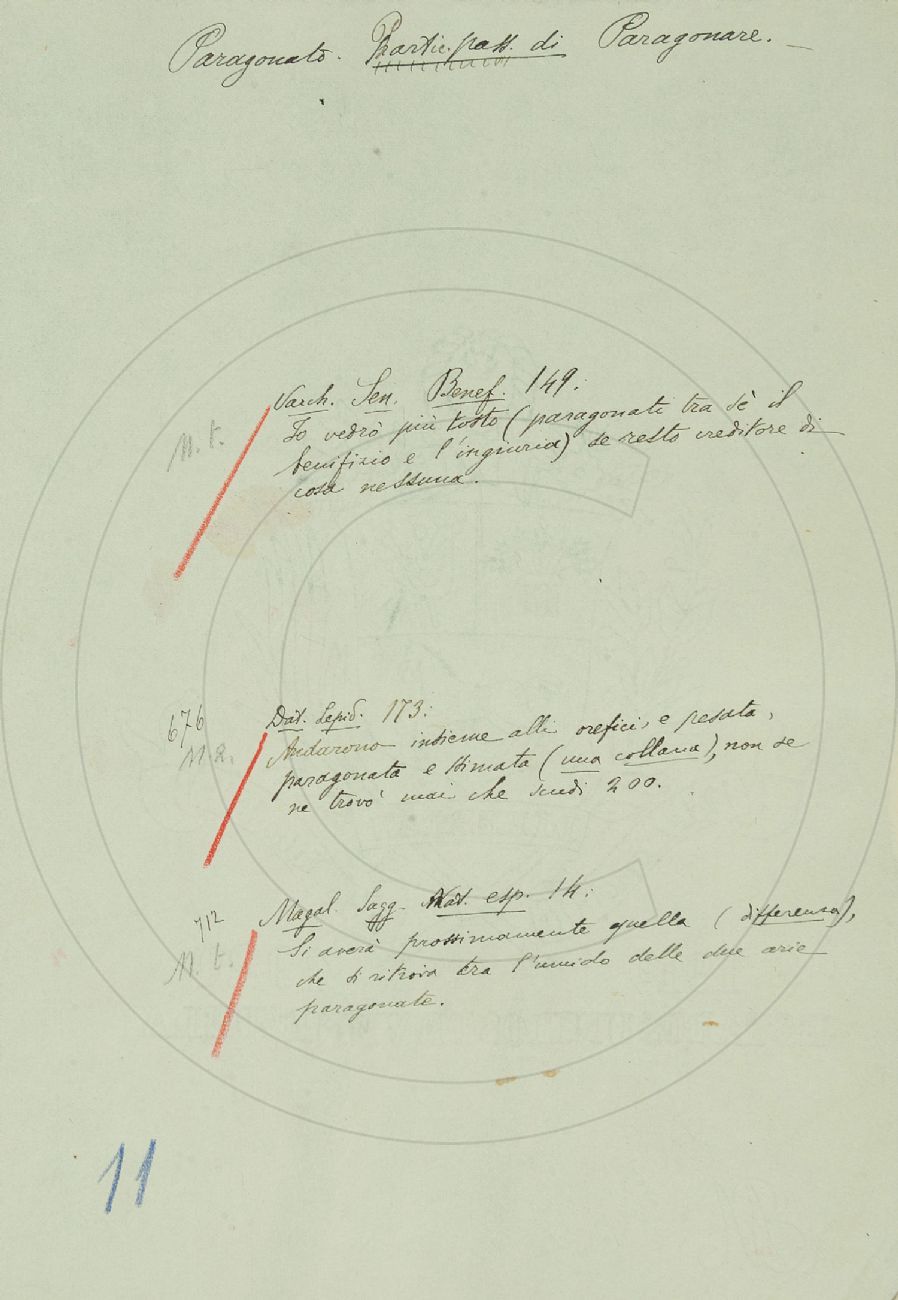 Paragonato. Partic. pass. di Paragonare.
Varch. Sen. Benef. 149:
Io vedrò più tosto (paragonati tra sè il
benifizio e l'ingiuria) se resto creditore di
cosa nessuna.
N. t.
676
Dat. Lepid. 173:
Andarono insieme alli orefici, e pesata,
paragonata e stimata (una collana), non se
ne trovò mai che scudi 200.
712
Magal. Sagg. Nat. esp. 14:
Si averà prossimamente quella (differenza),
che si ritrova tra l'umido delle due arie
paragonate.
N. t.
11